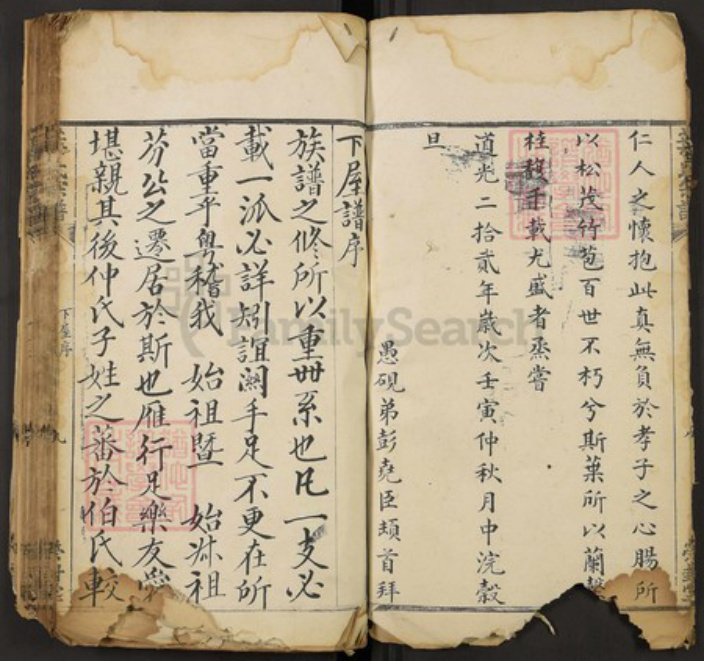 仁人之懷抱此真無負於孝子之心腸所
以松茂竹苞百世不朽兮斯葉所以蘭馨
桂馥千載尤盛者烝嘗
道光二拾貳年歲次壬寅仲秋月中浣穀
旦
愚硯弟彭堯臣頓首拜
下屋譜序
族譜之修所以重世系也凡一支必
載一派必詳矧誼關手足不更在所
當重乎粵稽我 始祖暨 始叔祖
芬公之遷居於斯也雁行足樂友愛
堪親其後仲氏子姓之蕃於伯氏較
下屋序
FamilySearch